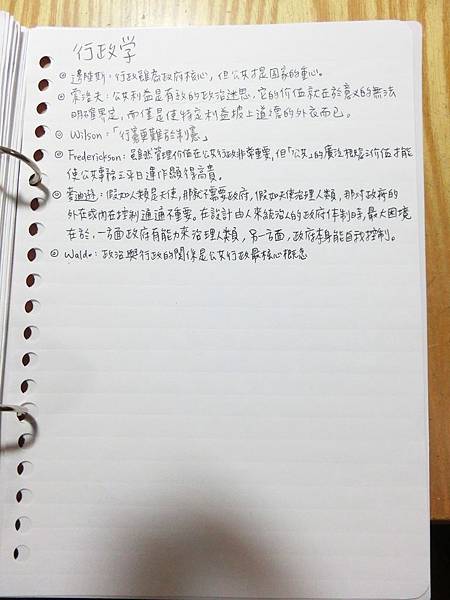 行政学
◎ 邊陲斯:行政雖為政府核心,但公共才是國家的重心。
◎ 索洛夫:公共利益是有效的政治迷思,它的价值就在於意义的無法
明確界定,而僅是使特定利益披上道德的外衣而已。
◎ Wilson:「行憲更難於制憲」
◎ Frederickson:雖然管理价值在公共行政非常重要,但「公共」的廣泛概念价值才能
使公共事務之平日運作顯得高貴。
◎ 麥迪遜:假如人類是天使,那就不需要政府,假如天使治理人類,那對政府的
外在或內在控制通通不重要。在設計由人來統治人的政府体制時,最大困境
在於,一方面政府有能力來治理人類,另一方面,政府本身能自我控制。
◎ Waldo:政治與行政的關係是公共行政最核心概念